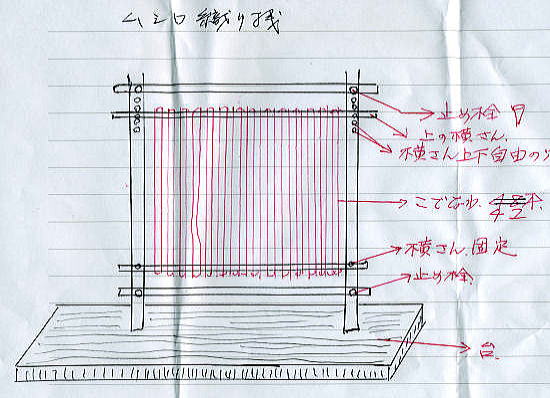 ムシロ織り機
止め栓
上の横さん.
横さん上下自由の穴
こでなわ. 48 42本.
横さん. 固定
止め栓.
台.